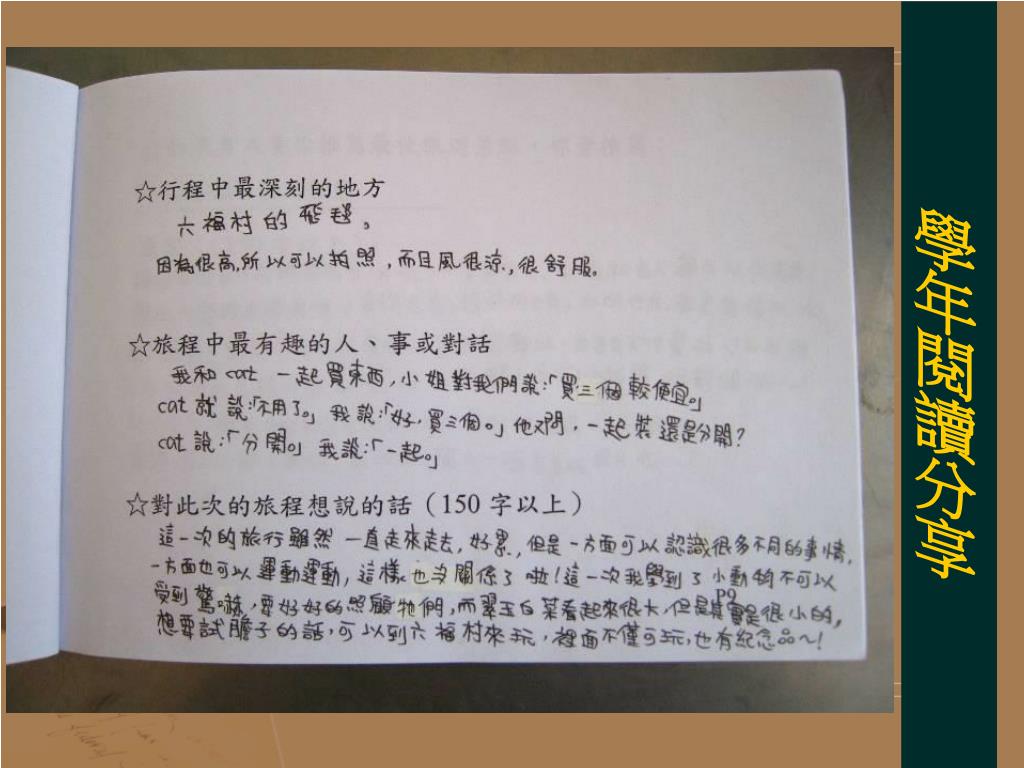 學年閱讀分享
☆行程中最深刻的地方
六福村的飛毯。
因為很高,所以可以拍照,而且風很涼,很舒服。
☆旅程中最有趣的人、事或對話
我和cat 一起買東西,小姐對我們說:「買三個較便宜。」
cat 就說:「不用了。」我說:「好,買三個。」他又問,一起裝還是分開?
cat 說:「分開。」我說:「一起。」
☆對此次的旅程想說的話(150 字以上)
這一次的旅行雖然一直走來走去,好累,但是一方面可以認識很多不同的事情,
一方面也可以運動運動,這樣也沒關係了啦!這一次我學到了小動物不可以
受到驚嚇,要好好的照顧牠們,而翠玉白菜看起來很大,但是其實是很小的,
想要試膽子的話,可以到六福村來玩,裡面不僅可玩,也有紀念品~!
P9